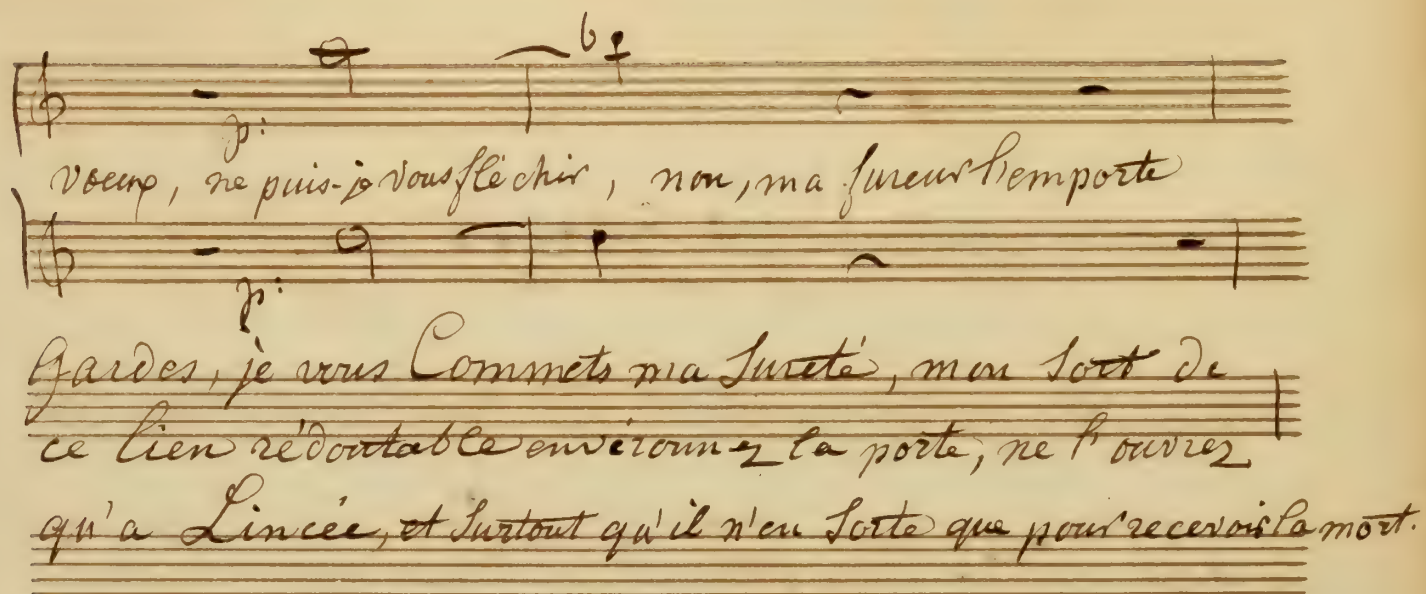 6
p:
voeux, ne puis-je vous fléchir, non, ma fureur l'emporte
p:
Gardes, je vous Commets ma Sureté, mon Sort de
ce lieu rédoutable environnez la porte, ne l'ouvrez
qu'a Lincée, et Surtout qu'il n'en Sorte que pour recevoir la mort.